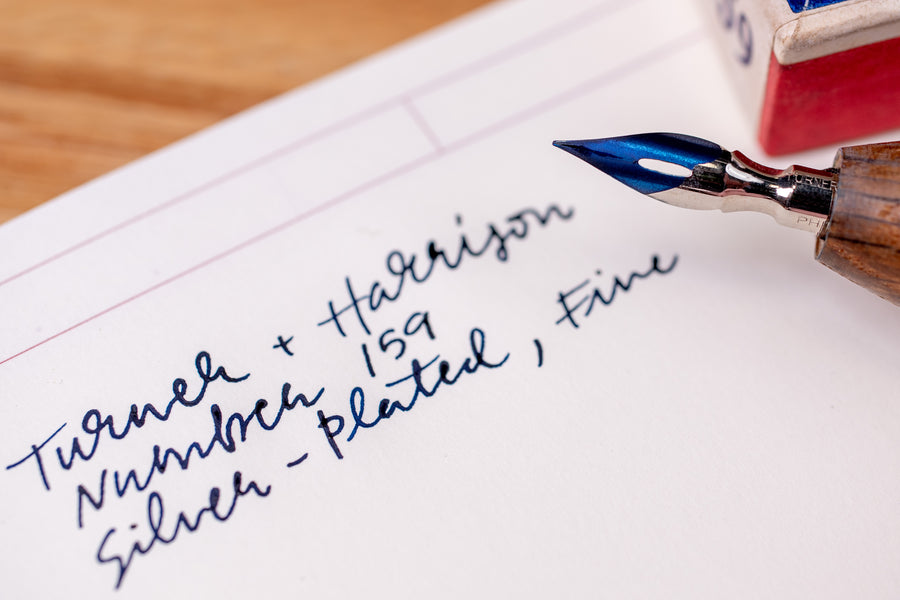 Turner + Harrison
Number 159
Silver-plated, Fine